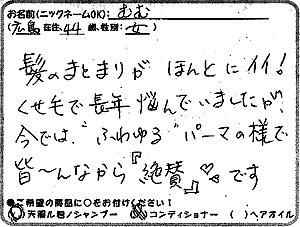 お名前(ニックネームOK): むむ
(広島 在住、44 歳、性別: 女 )
髪のまとまりが ほんとにイイ!
くせ毛で長年 悩んでいましたが、
今では、"ふわゆる" パーマの様で
皆〜んなから『絶賛』♡です
●ご希望の商品に○をお付けください!
シャンプー コンディショナー ( )ヘアオイル